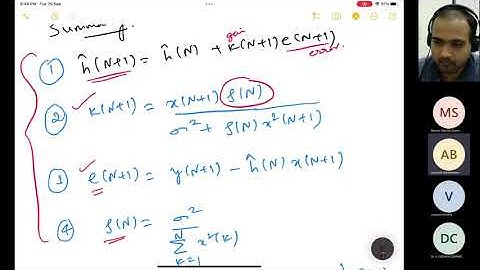 6:49 PM Tue 20 Sep
Summary.
① ĥ(N+1) = ĥ(N) + k(N+1) e(N+1)
gain
error.
② k(N+1) = x(N+1) ρ(N) / σ² + ρ(N) x²(N+1)
③ e(N+1) = y(N+1) − ĥ(N) x(N+1)
④ ρ(N) = σ² / N ∑ k=1 x²(k)
MS
AB
V
DC